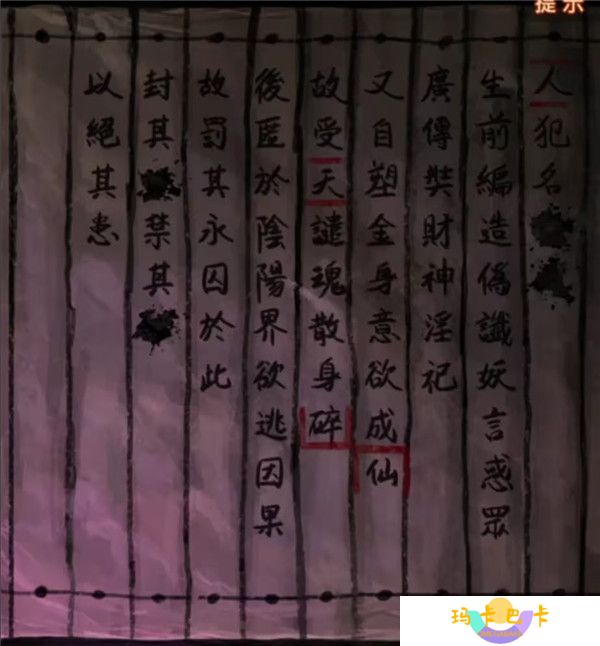 提示
人犯名
生前編造偽讖妖言惑眾
廣傳奘財神淫祀
又自塑金身意欲成仙
故受天譴魂散身碎
後匿於陰陽界欲逃因果
故罰其永囚於此
封其 禁其
以絕其患
玛卡巴卡